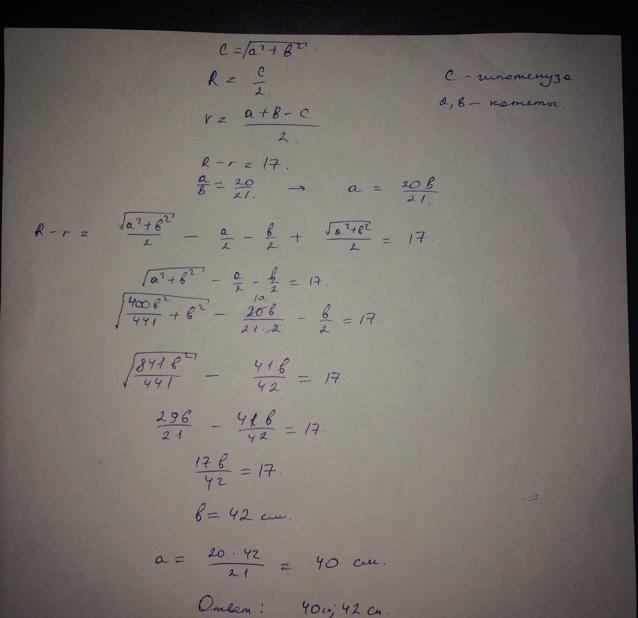 c = √(a² + в²).
R = c/2.
c - гипотенуза
a, в - катеты.
r = (a + в - c)/2.
R - r = 17.
a/в = 20/21. → a = 20в/21.
R - r = √(a² + в²)/2 - a/2 - в/2 + √(a² + в²)/2 = 17.
√(a² + в²) - a/2 - в/2 = 17.
10.
√(400в²/441 + в²) - 20в/(21·2) - в/2 = 17.
√(841в²/441) - 41в/42 = 17.
29в/21 - 41в/42 = 17.
17в/42 = 17.
в = 42 см.
a = 20·42/21 = 40 см.
Ответ: 40 и 42 см.